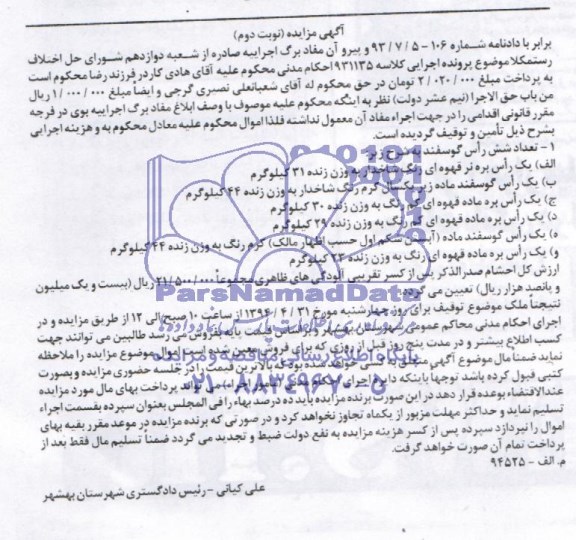 آگهی مزایده (نوبت دوم)
برابر با دادنامه شماره ۱۰۶ – ۵ / ۷ / ۹۳ و پیرو آن مفاد برگ اجراییه صادره از شعبه دوازدهم شورای حل اختلاف
رستمکلا موضوع پرونده اجرایی کلاسه ۹۳۱۱۳۵ احکام مدنی محکوم علیه آقای هادی کاردر فرزند رضا محکوم است
به پرداخت مبلغ ۲/۰۲۰/۰۰۰ تومان در حق محکوم له آقای شعبانعلی نصیری گرجی و ایضا مبلغ ۱/۰۰۰/۰۰۰ ریال
من باب حق الاجرا (نیم عشر دولت) نظر به اینکه محکوم علیه موصوف با وصف ابلاغ مفاد برگ اجراییه بوی در فرجه
مقرر قانونی اقدامی را در جهت اجراء مفاد آن معمول نداشته فلذا اموال محکوم علیه معادل محکوم به و هزینه اجرایی
بشرح ذیل تأمین و توقیف گردیده است.
۱- تعداد شش رأس گوسفند به شرح زیر
الف) یک رأس بره نر قهوه ای رنگ شاخدار به وزن زنده ۳۱ کیلوگرم
ب) یک رأس گوسفند ماده زیر یکسال کرم رنگ شاخدار به وزن زنده ۴۴ کیلوگرم
ج) یک رأس بره ماده قهوه ای کم رنگ به وزن زنده ۳۰ کیلوگرم
د) یک رأس بره ماده قهوه ای کم رنگ به وزن زنده ۲۹ کیلوگرم
ه) یک رأس گوسفند ماده (آبستن شکم اول حسب اظهار مالک) کرم رنگ به وزن زنده ۴۴ کیلوگرم
و) یک رأس بره ماده قهوه ای رنگ به وزن زنده ۲۳ کیلوگرم
ارزش کل احشام صدرالذکر پس از کسر تقریبی آلودگی های ظاهری مجموعاً ۲۱/۵۰۰/۰۰۰ ریال (بیست و یک میلیون
و پانصد هزار ریال) تعیین می گردد
نتیجتاً ملک موضوع توقیف برای روز چهارشنبه مورخ ۳۱ / ۴ / ۱۳۹۶ از ساعت ۱۰ صبح الی ۱۲ از طریق مزایده و در
اجرای احکام مدنی محاکم عمومی شهرستان بهشهر و بر اساس قیمت پایه بفروش می رسد طالبین می توانند جهت
کسب اطلاع بیشتر و در مدت پنج روز قبل از روزی که برای فروش معین شده است اموال موضوع مزایده را ملاحظه
نماید ضمنا مال موضوع آگهی متعلق به کسی خواهد شد بود که بالاترین قیمت را در جلسه حضوری مزایده و بصورت
کتبی قبول کرده باشد توجها باینکه دایره اجرای پرداخت بهای مال مورد مزایده
عندالاقتضاء بوعده قرار دهد در این صورت برنده مزایده باید ده درصد بهاء را فی المجلس بعنوان سپرده بقسمت اجراء
تسلیم نماید و حداکثر مهلت مزبور از یکماه تجاوز نخواهد کرد و در صورتی که برنده مزایده در موعد مقرر بقیه بهای
اموال را نپردازد سپرده پس از کسر هزینه مزایده به نفع دولت ضبط و تجدید می گردد ضمناً تسلیم مال فقط بعد از
پرداخت تمام آن صورت خواهد گرفت.
م. الف – ۹۴۵۲۵
علی کیانی – رئیس دادگستری شهرستان بهشهر
ParsNamadData
پایگاه اطلاع رسانی مناقصه و مزایده
۰۲۱-۸۸۳۴۹۶۷۰-۵